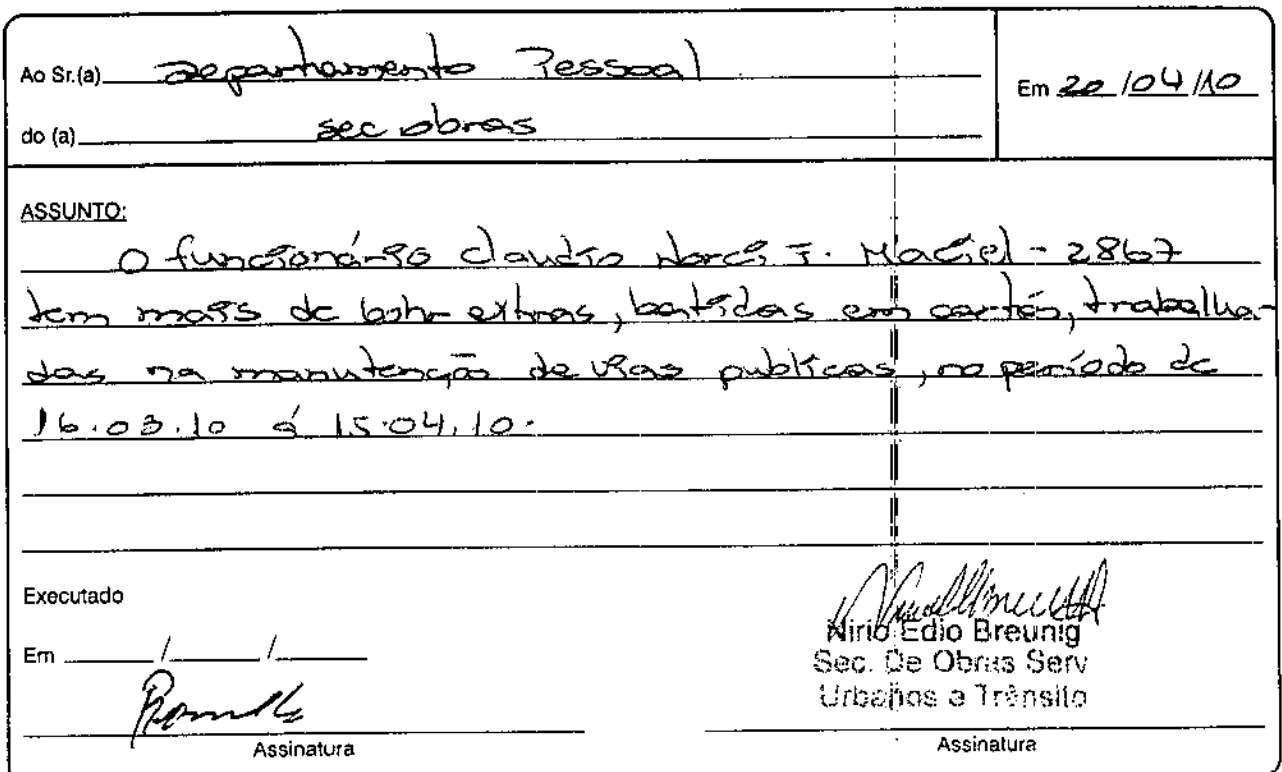 Ao Sr.(a) Departamento Pessoal
Em 20/04/10
do (a) sec obras
ASSUNTO:
O funcionário Claudio Narci T. Maciel - 2867
tem mais de 60hr extras, batidas em cartão, trabalha-
das na manutenção de vias publicas, no período de
16.03.10 á 15.04.10.
Executado
Em / /
Nirio Edio Breunig
Sec. De Obras Serv
Urbanos e Trânsito
Assinatura
Assinatura